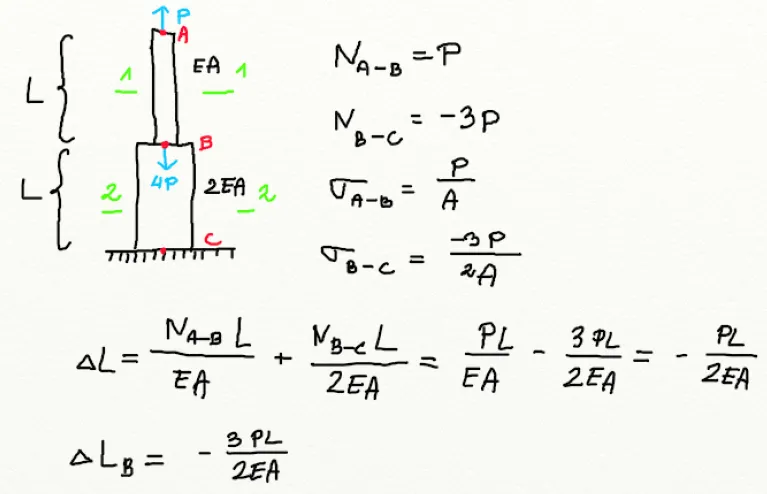 P
A
L
1
EA
1
B
L
2
4P
2EA
2
C
N_{A-B} = P
N_{B-C} = -3P
σ_{A-B} = P/A
σ_{B-C} = -3P/2A
ΔL = N_{A-B} L/EA + N_{B-C} L/2EA = PL/EA - 3PL/2EA = - PL/2EA
ΔL_B = - 3PL/2EA